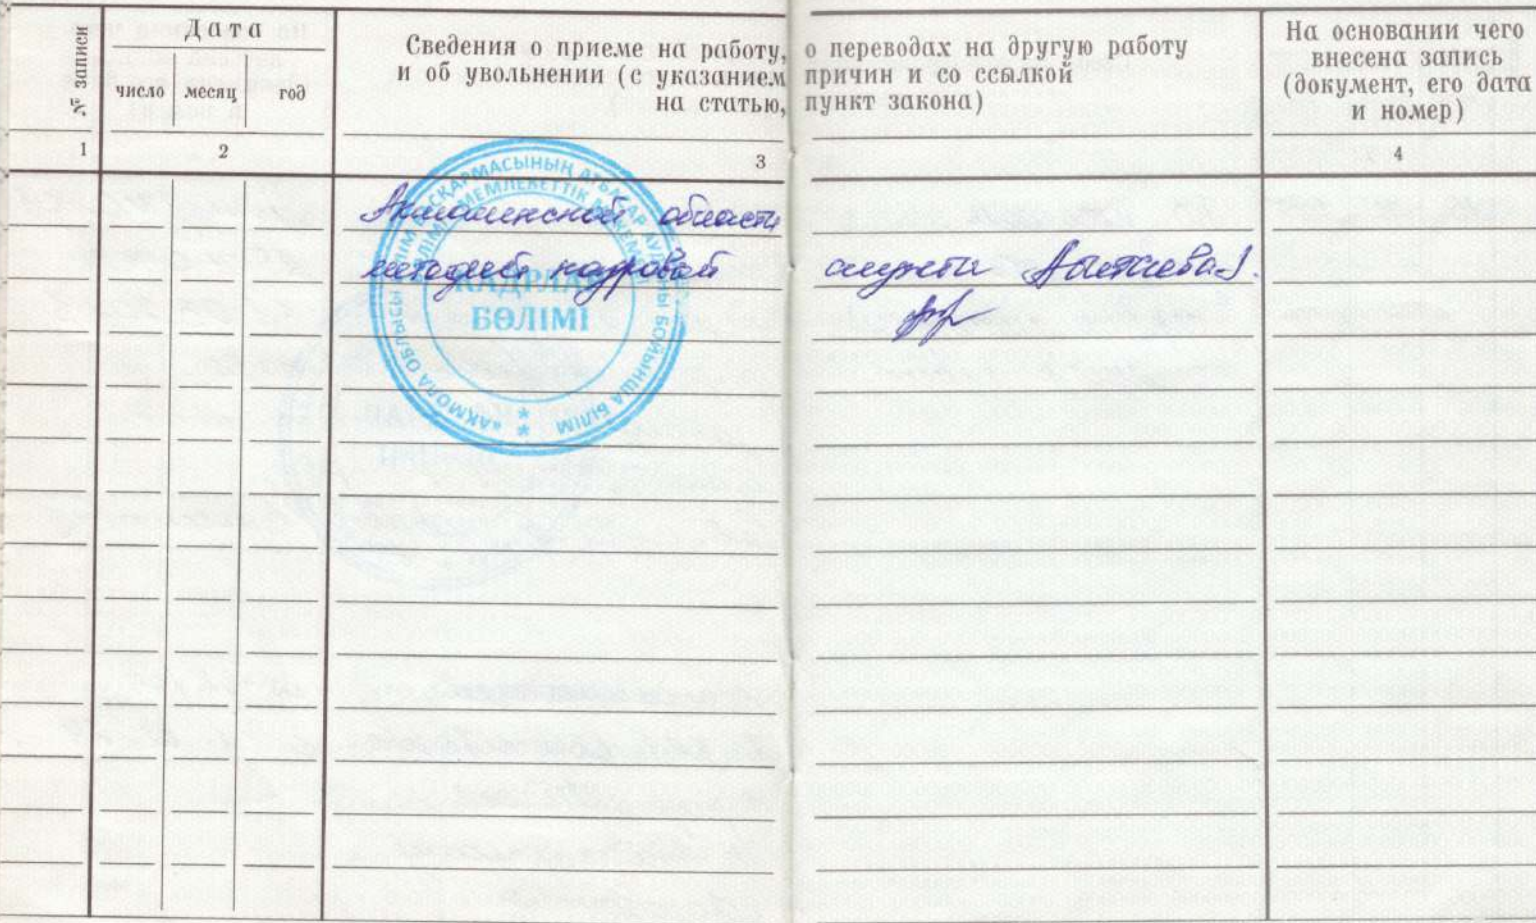 № записи
Дата
число месяц год
Сведения о приеме на работу, о переводах на другую работу
и об увольнении (с указанием причин и со ссылкой
на статью, пункт закона)
На основании чего
внесена запись
(документ, его дата
и номер)
1 2 3 4
Акмолинской области
методист кадровой службы
КАДРЛАР
БӨЛІМІ
«АҚМОЛА ОБЛЫСЫ БІЛІМ БАСҚАРМАСЫНЫҢ АТБАСАР АУДАНЫ БОЙЫНША БІЛІМ
БӨЛІМІ» МЕМЛЕКЕТТІК МЕКЕМЕСІ